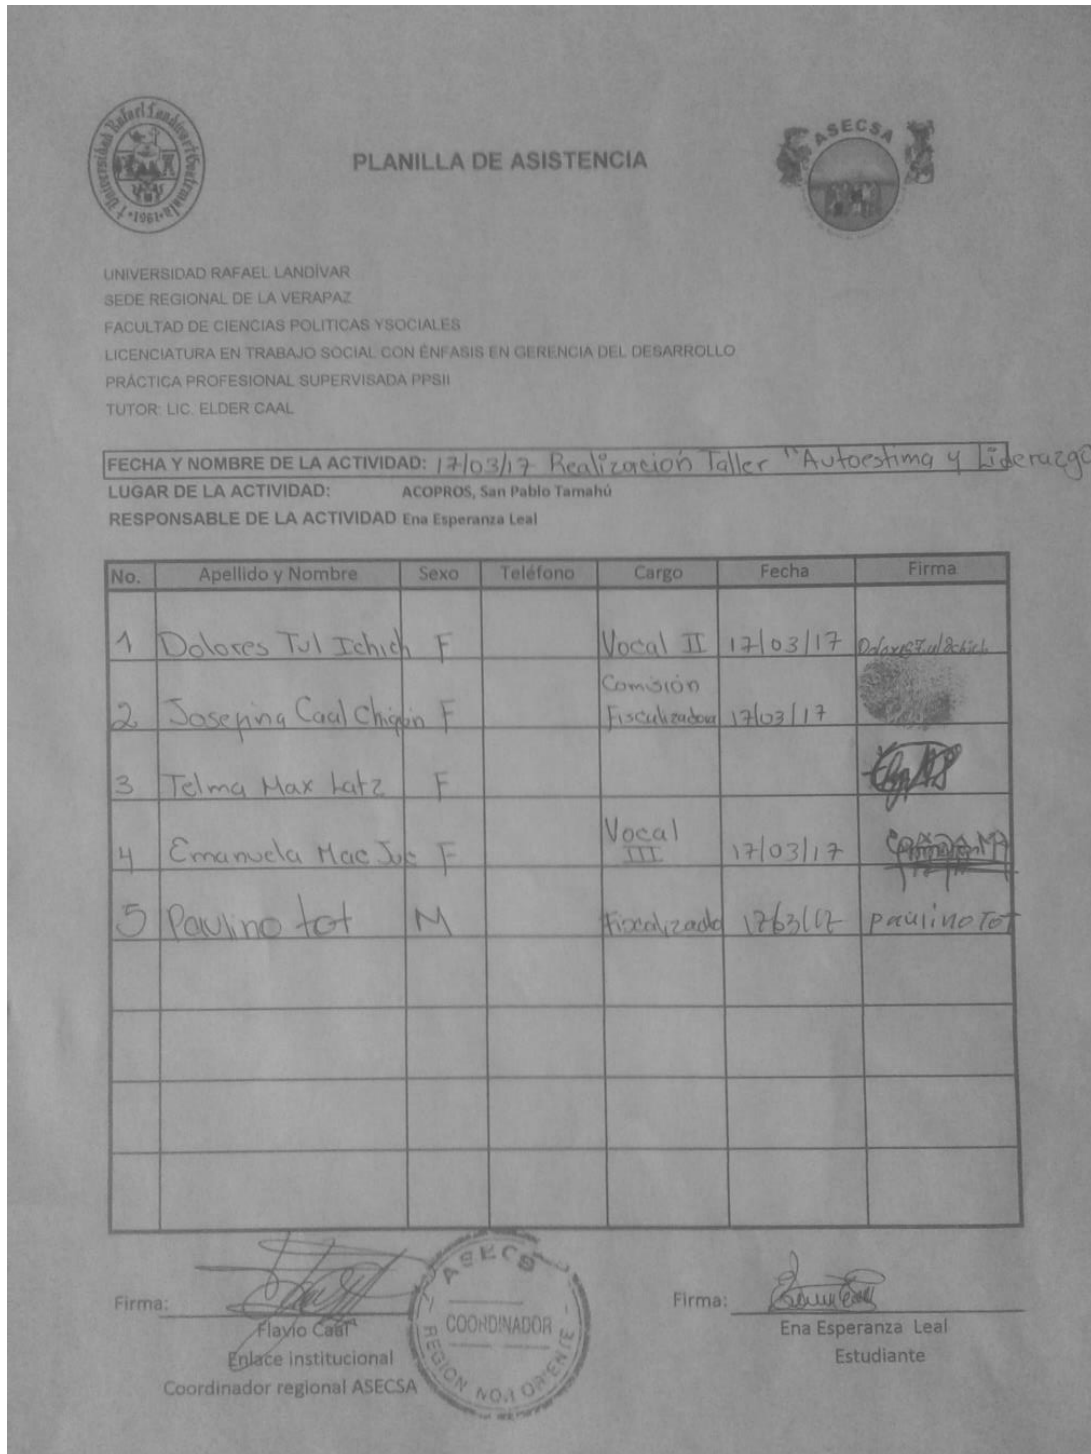 Universidad Rafael Landívar Guatemala
1961
PLANILLA DE ASISTENCIA
ASECSA
UNIVERSIDAD RAFAEL LANDÍVAR
SEDE REGIONAL DE LA VERAPAZ
FACULTAD DE CIENCIAS POLITICAS YSOCIALES
LICENCIATURA EN TRABAJO SOCIAL CON ÉNFASIS EN GERENCIA DEL DESARROLLO
PRÁCTICA PROFESIONAL SUPERVISADA PPSII
TUTOR: LIC. ELDER CAAL
FECHA Y NOMBRE DE LA ACTIVIDAD: 17/03/17 Realización Taller "Autoestima y Liderazgo
LUGAR DE LA ACTIVIDAD: ACOPROS, San Pablo Tamahú
RESPONSABLE DE LA ACTIVIDAD Ena Esperanza Leal
No. Apellido y Nombre Sexo Teléfono Cargo Fecha Firma
1 Dolores Tul Ichich F Vocal II 17/03/17 Dolores Tul
2 Josefina Caal Chiquin F Comisión Fiscalizadora 17/03/17
3 Telma Max Latz F
4 Emanuela Mac Juc F Vocal III 17/03/17
5 Paulino tot M Fiscalizado paulino Tot
Firma: Firma:
Flavio Caal Ena Esperanza Leal
Enlace institucional Estudiante
Coordinador regional ASECSA
ASECS
COORDINADOR
REGION NO.1 ORIENTE